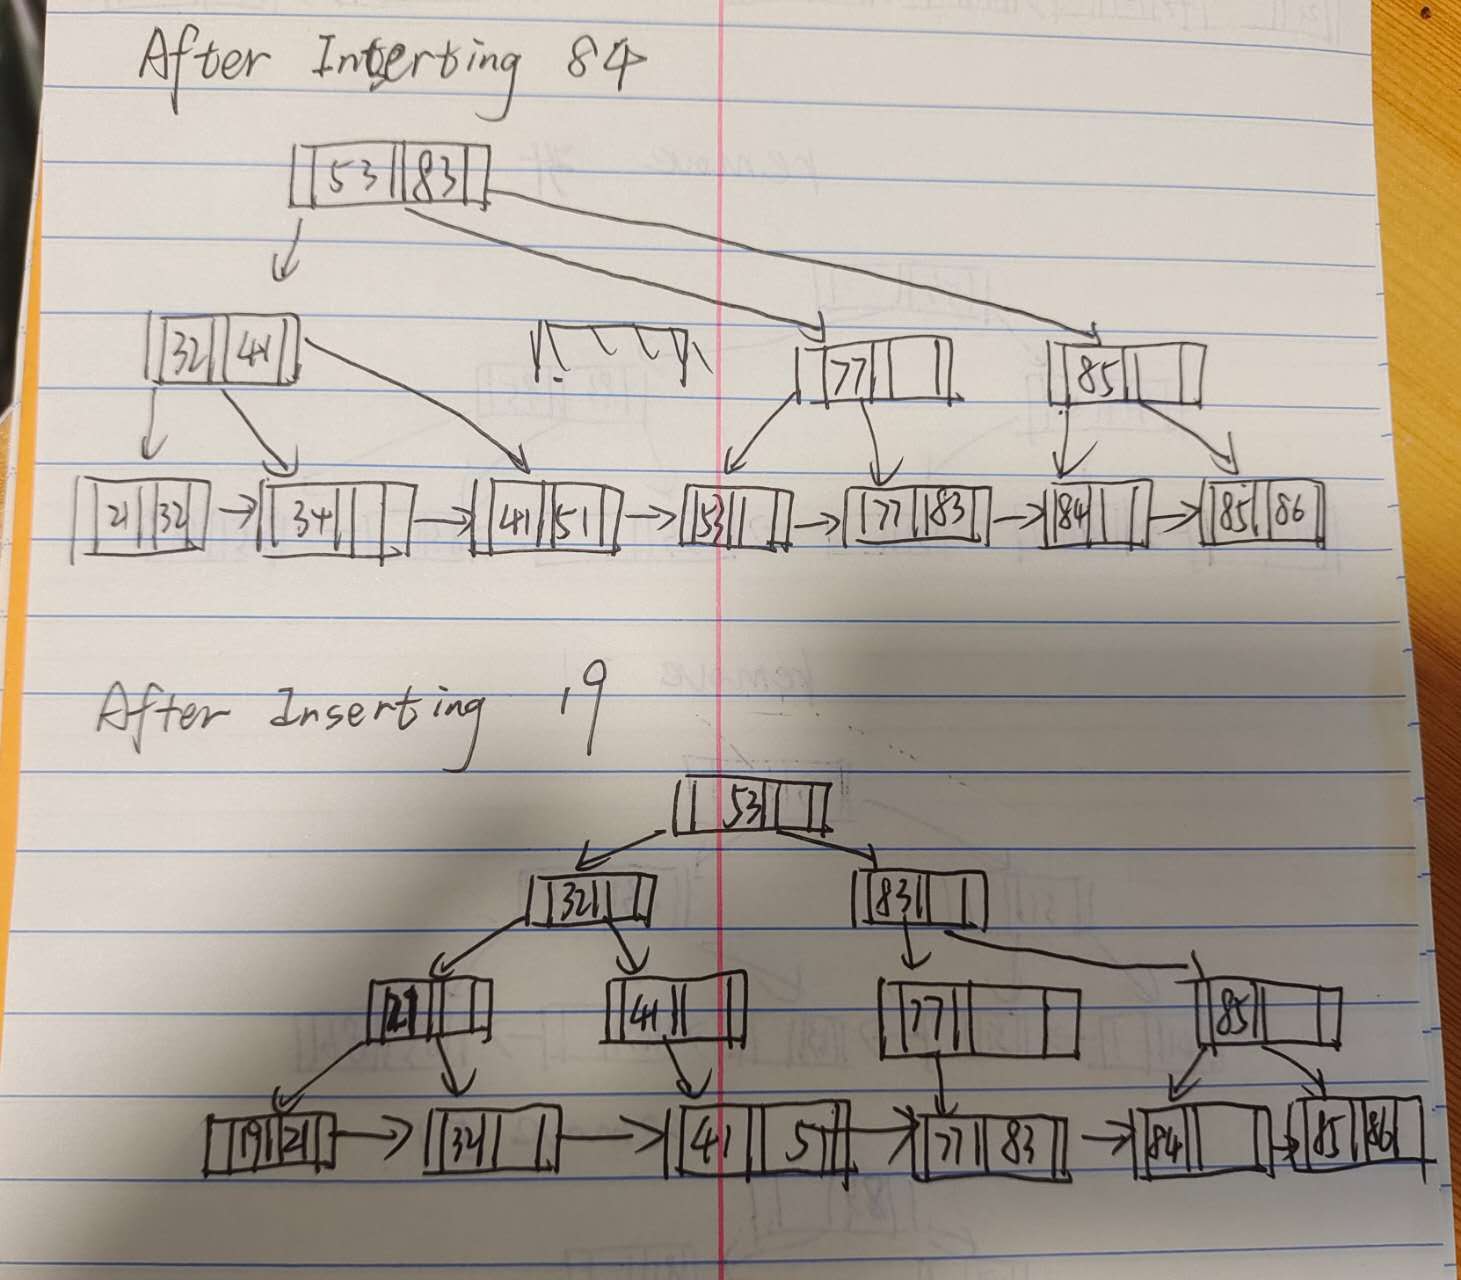 After Inserting 84
53 83
32 41 77 85
21 32 34 41 51 53 77 83 84 85 86
After Inserting 19
53
32 83
21 41 77 85
19 21 34 41 51 77 83 84 85 86